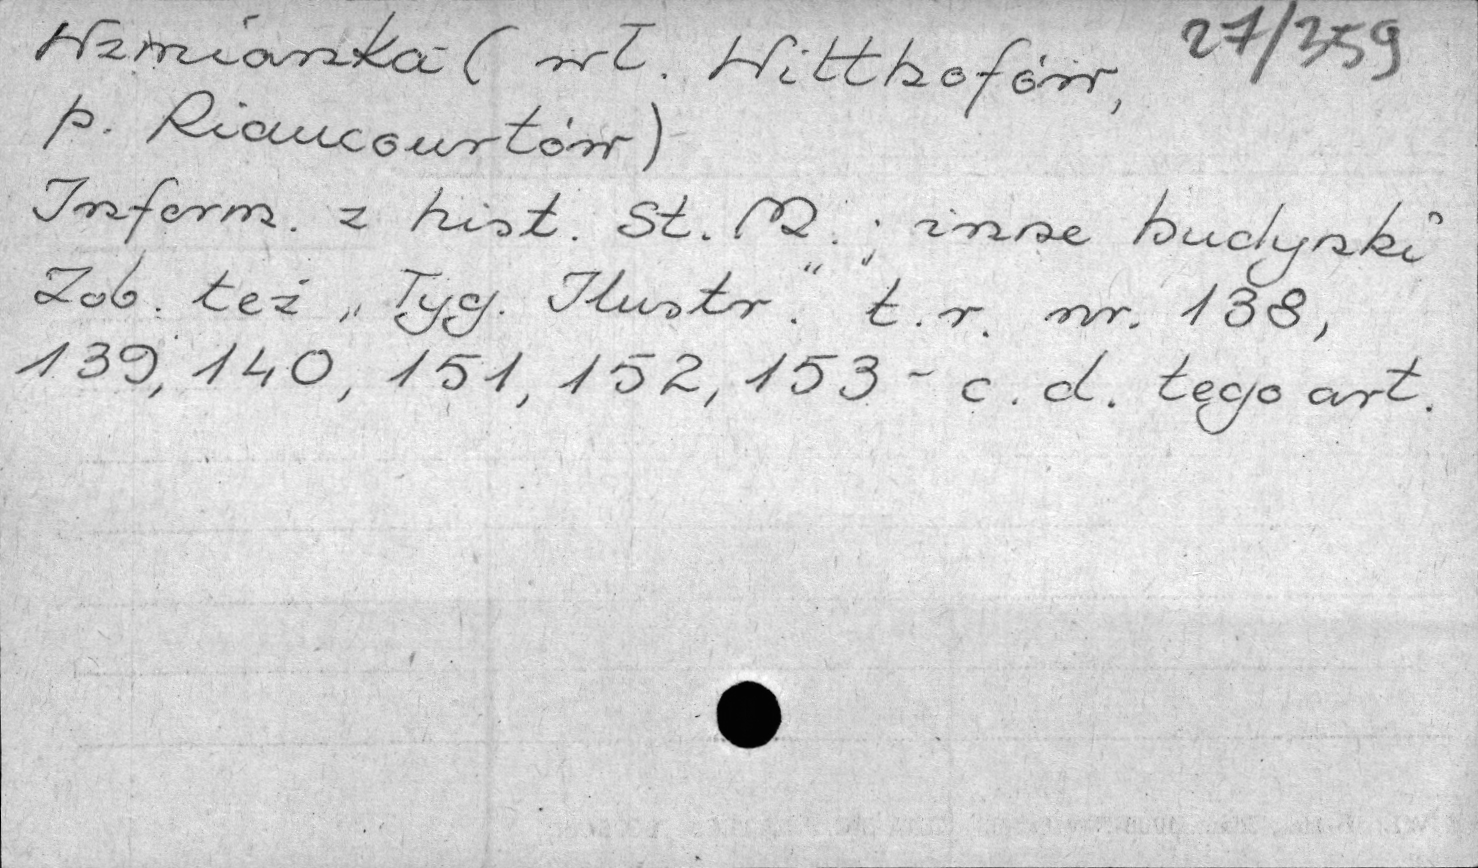 27/359
Wzmianka (wł. Witthofów,
p. Riaucourtów)
Inform. z hist. St. M.; inne budynki
Zob. też „Tyg. Ilustr." t.r. nr. 138,
139, 140, 151, 152, 153 - c.d. tego art.